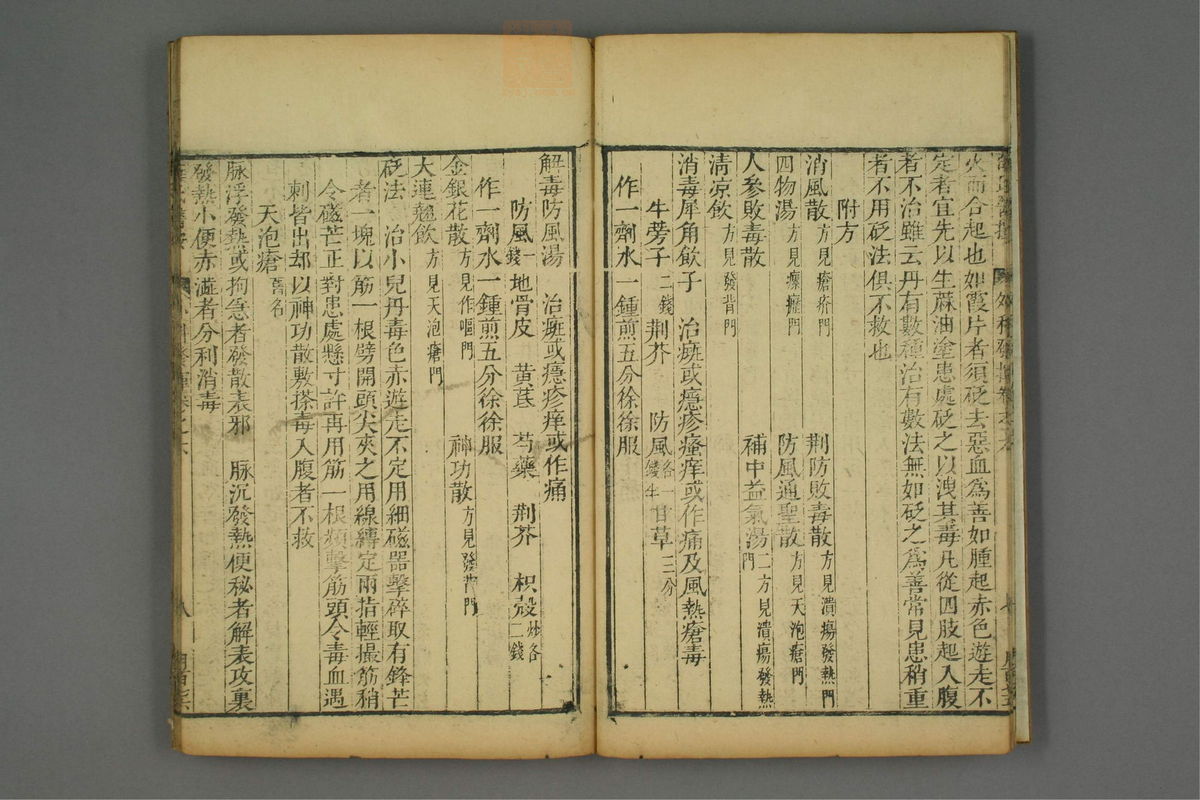 火而合起也如霞片者須砭去惡血為善如腫起赤色遊走不
定者宜先以生蔴油塗患處砭之以洩其毒凡從四肢起入腹
者不治雖云丹有數種治有數法無如砭之為善常見患稍重
者不用砭法俱不救也
附方
消風散方見瘡疥門 荆防敗毒散方見潰瘍發熱門
四物湯方見瘰癧門 防風通聖散方見天泡瘡門
人參敗毒散 補中益氣湯二方見潰瘍發熱門
清涼飲方見發背門
消毒犀角飲子 治癍或癮疹瘙痒或作痛及風熱瘡毒
牛蒡子二錢 荆芥 防風各一錢半 甘草三分
作一劑水一鍾煎五分徐徐服
解毒防風湯 治癍或癮疹痒或作痛
防風一錢 地骨皮 黄茋 芍藥 荆芥 枳殻炒各二錢
作一劑水一鍾煎五分徐徐服
金銀花散方見作嘔門 神功散方見發背門
大連翹飲方見天泡瘡門
砭法 治小兒丹毒色赤遊走不定用細磁器擊碎取有鋒芒
者一塊以筋一根劈開頭尖夾之用線縛定兩指輕撮筋稍
令磁芒正對患處懸寸許再用筋一根頻擊筋頭令毒血遇
刺皆出却以神功散敷搽毒入腹者不救
天泡瘡
脉浮發熱或拘急者發散表邪 脉沉發熱便秘者解表攻裏
發熱小便赤澁者分利消毒